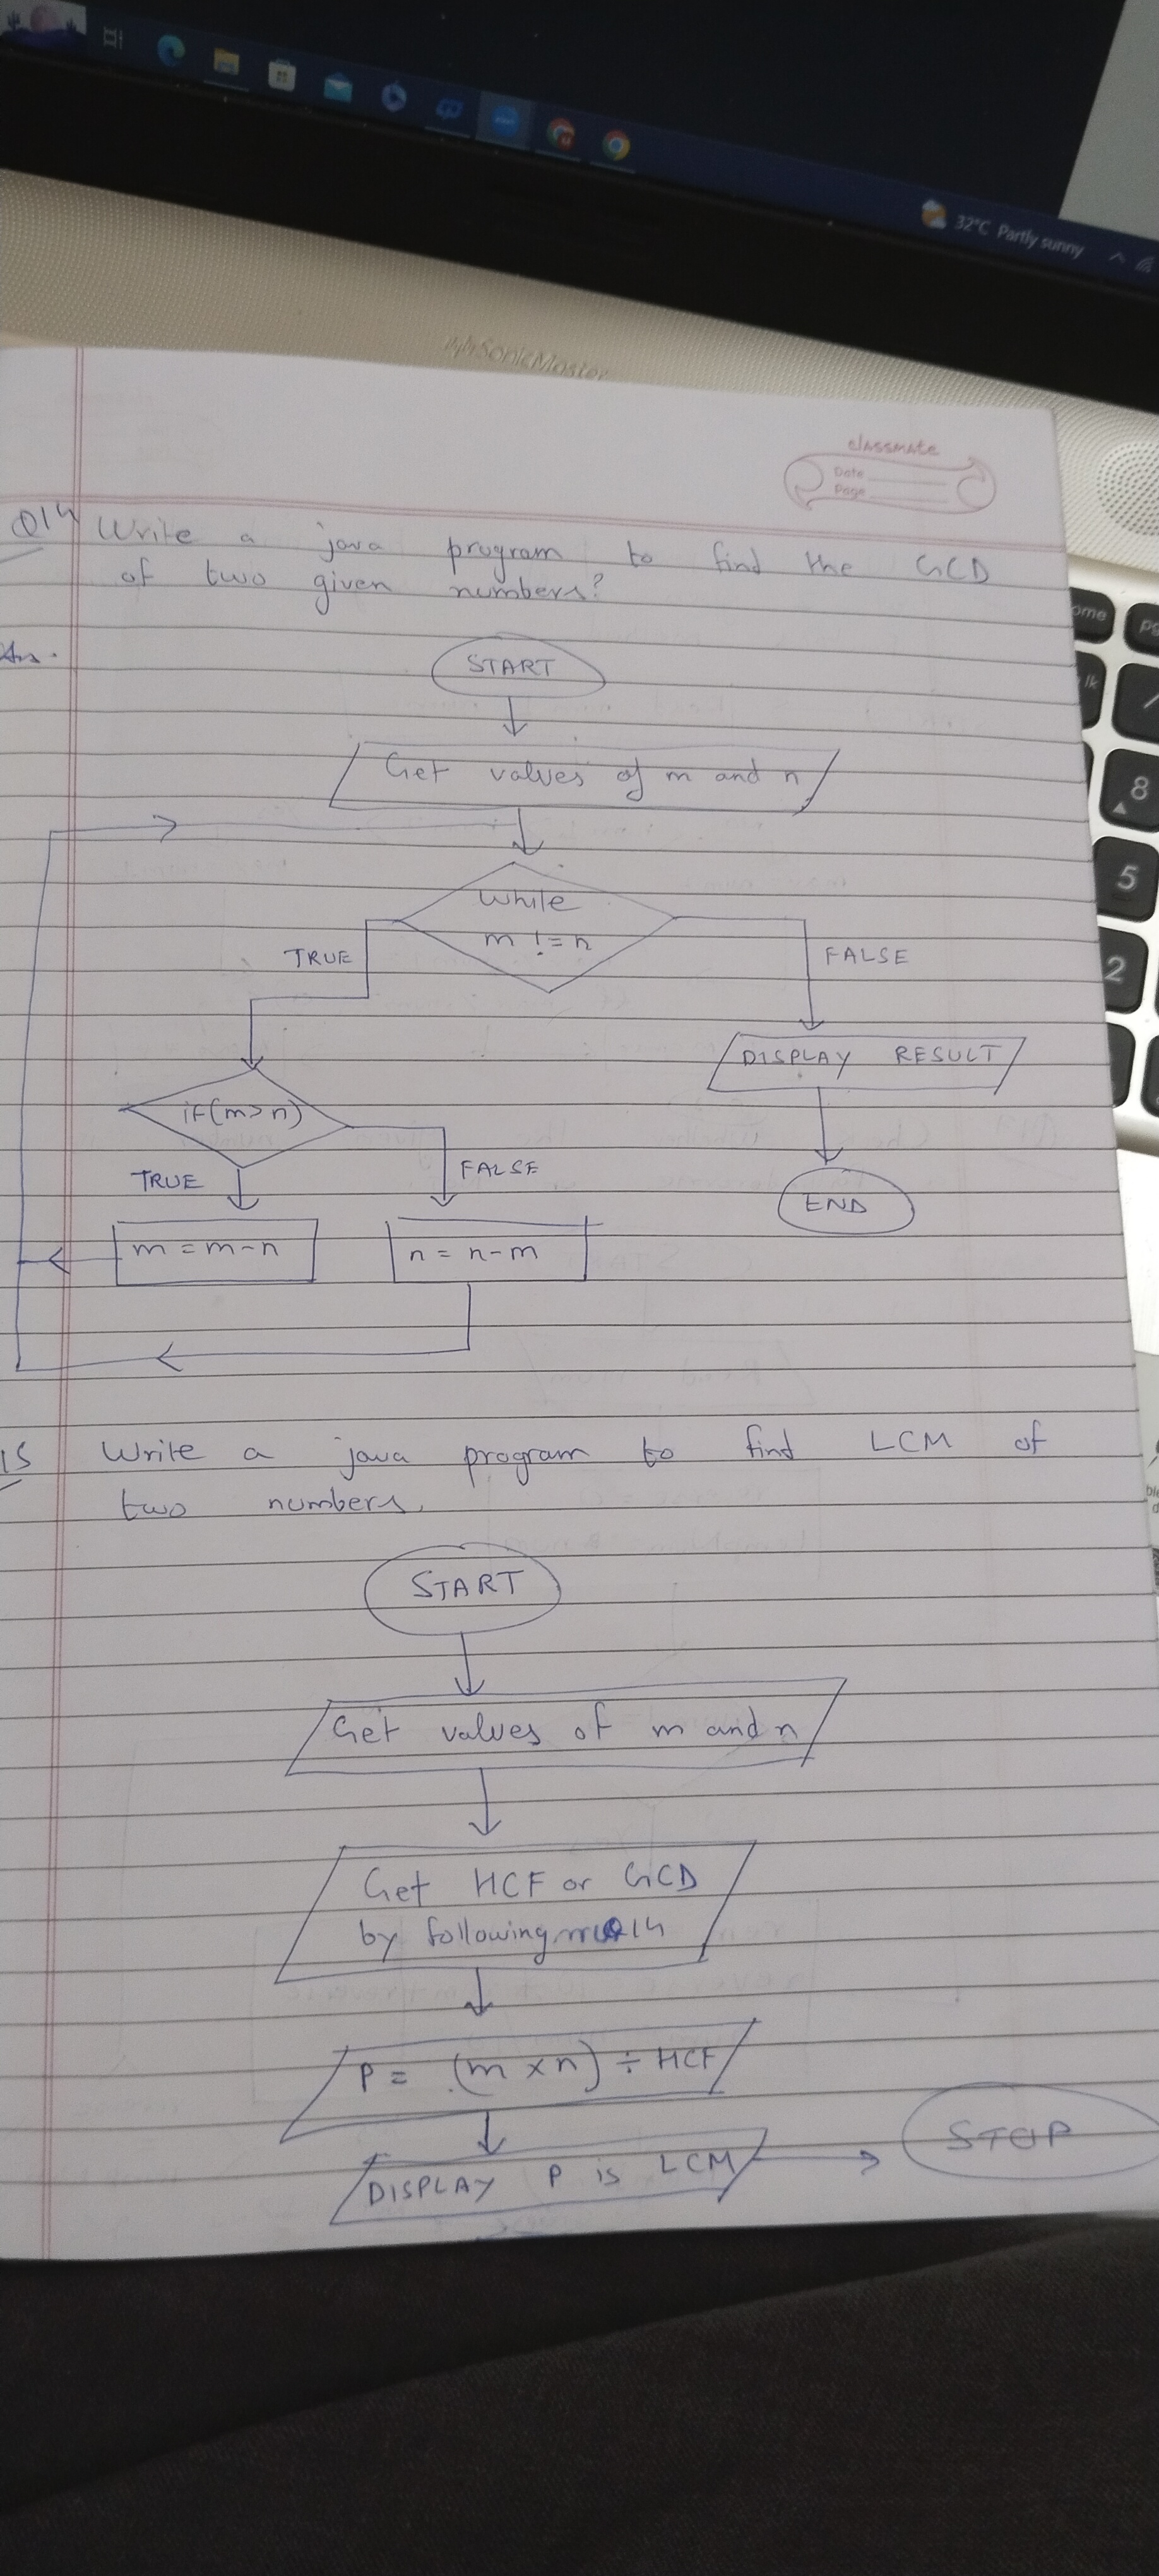 32°C Partly sunny
SonicMaster
classmate
Date
Page
Q14 Write a java program to find the GCD
of two given numbers?
Ans.
START
Get values of m and n
while
m != n
TRUE
FALSE
DISPLAY RESULT
if(m>n)
TRUE
FALSE
END
m = m-n
n = n-m
15 Write a java program to find LCM of
two numbers.
START
Get values of m and n
Get HCF or GCD
by following Q14
P = (m x n) ÷ HCF
DISPLAY P is LCM
STOP
8
5
2